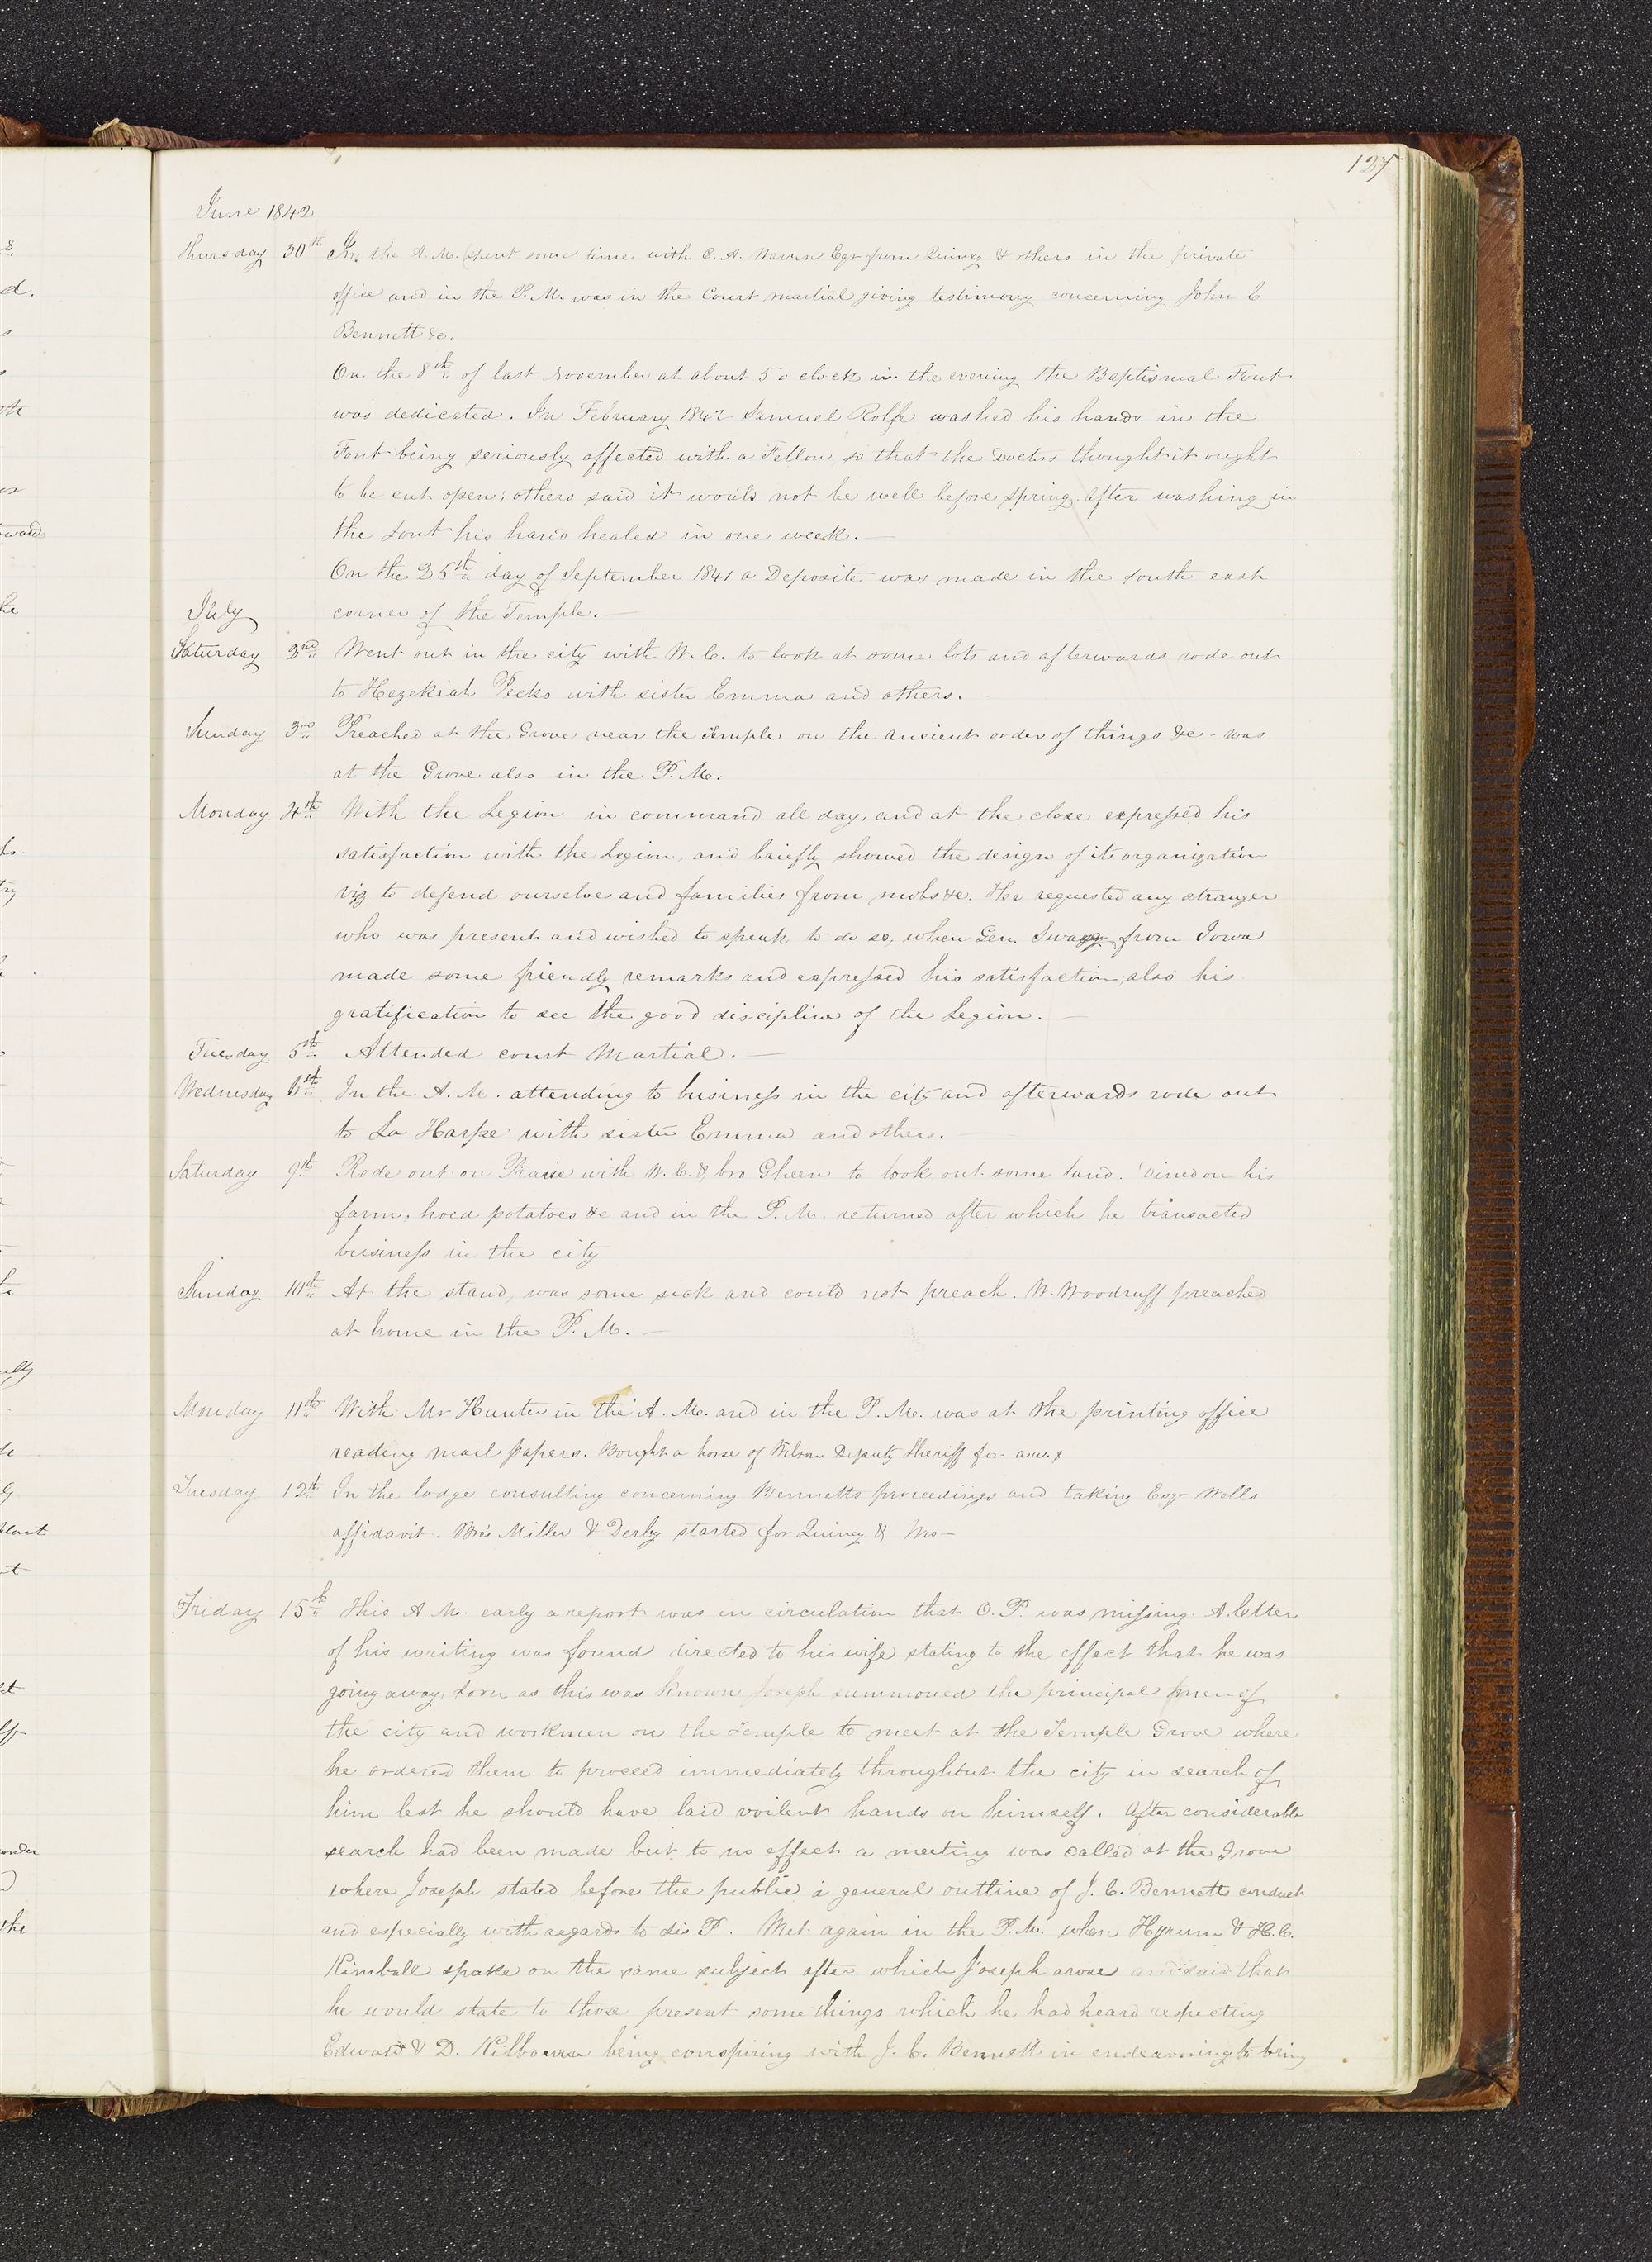 127
June 1842
Thursday 30th In the A.M. spent some time with C. A. Warren Eqr from Quincy & others in the private
office and in the P.M. was in the Court martial giving testimony concerning John C
Bennett &c.
On the 8th of last November at about 5 o clock in the evening the Baptismal Font
was dedicated. In February 1842 Samuel Rolfe washed his hands in the
Font being seriously affected with a Fellon, so that the Doctors thought it ought
to be cut open; others said it would not be well before spring. After washing in
the font his hand healed in one week.—
On the 25th day of September 1841 a Deposite was made in the south east
July corner of the Temple.—
Saturday 2nd Went out in the city with W. C. to look at some lots and afterwards rode out
to Hezekiah Pecks with sister Emma and others.—
Sunday 3rd Preached at the Grove near the Temple on the ancient order of things &c - was
at the Grove also in the P.M.
Monday 4th With the Legion in command all day, and at the close expressed his
satisfaction with the Legion, and briefly showed the design of its organization
viz to defend ourselves and families from mobs &c. He requested any stranger
who was present and wished to speak to do so, when Gen. from Iowa
made some friendly remarks and expressed his satisfaction, also his
gratification to see the good discipline of the Legion.—
Tuesday 5th Attended court Martial.—
Wednesday 6th In the A.M. attending to business in the city and afterwards rode out
to La Harpe with sister Emma and others.—
Saturday 9th Rode out on Praire with W. C. & bro Gheen to look out some land. Dined on his
farm, hoed potatoes &c and in the P.M. returned after which he transacted
business in the city
Sunday 10th At the stand, was some sick and could not preach. W. Woodruff preached
at home in the P.M.—
Monday 11th With Mr Hunter in the A.M. and in the P.M. was at the printing office
reading mail papers. Bought a horse of Wilson Deputy Sheriff for
Tuesday 12th In the lodge consulting concerning Bennetts proceedings and taking Esq- Wells
affidavit. Bro's Miller & Derby started for Quincy & Mo—
Friday 15th This A.M. early a report was in circulation that O. P. was missing. A letter
of his writing was found directed to his wife stating to the effect that he was
going away. Soon as this was known Joseph summoned the principal men of
the city and workmen on the Temple to meet at the Temple Grove where
he ordered them to proceed immediately throughout the city in search of
him lest he should have laid voilent hands on himself. After considerable
search had been made but to no effect a meeting was called at the Grove
where Joseph stated before the public a general outline of J. C. Bennetts conduct
and especially with regards to Sis P. Met again in the P.M. when Hyrum & H. C.
Kimball spake on the same subject after which Joseph arose and said that
he would state to those present some things which he had heard respecting
Edward & D. Kilbourn being conspiring with J. C. Bennett in endeavoring to bring